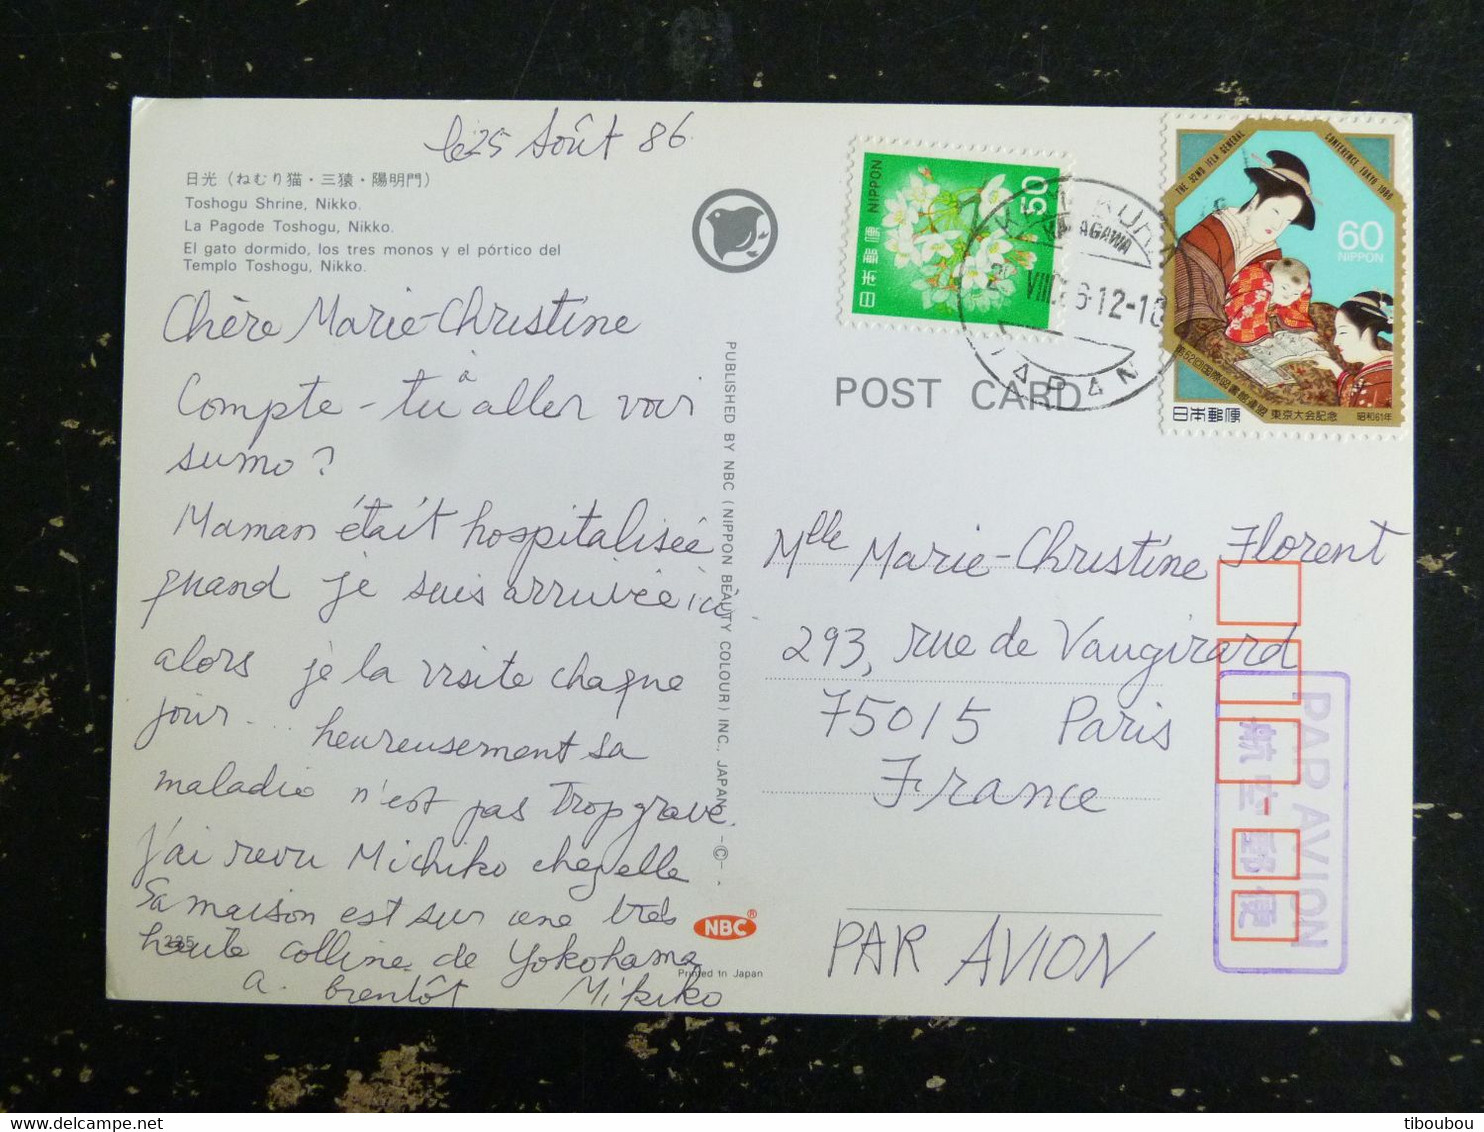 le 25 Août 86
日光（ねむり猫・三猿・陽明門）
Toshogu Shrine, Nikko.
La Pagode Toshogu, Nikko.
El gato dormido, los tres monos y el pórtico del
Templo Toshogu, Nikko.
Chère Marie-Christine
Compte-tu à aller voir
sumo?
Maman était hospitalisée
quand je suis arrivée ici
alors je la visite chaque
jour... heureusement sa
maladie n'est pas trop grave.
J'ai revu Michiko chez elle
Sa maison est sur une très
haute colline de Yokohama
a bientôt Mikiko
225
PUBLISHED BY NBC (NIPPON BEAUTY COLOUR) INC., JAPAN -©-.
NBC®
Printed in Japan
POST CARD
NIPPON 50
日本郵便
AGAWA
VIII 86 12-18
JAPAN
THE 52ND IFLA GENERAL CONFERENCE TOKYO 1986
60
NIPPON
第52回国際図書館連盟 東京大会記念
日本郵便
昭和61年
Mlle Marie-Christine Florent
293, rue de Vaugirard
75015 Paris
France
PAR AVION
PAR AVION
航空郵便
tiboubou
delcampe.net